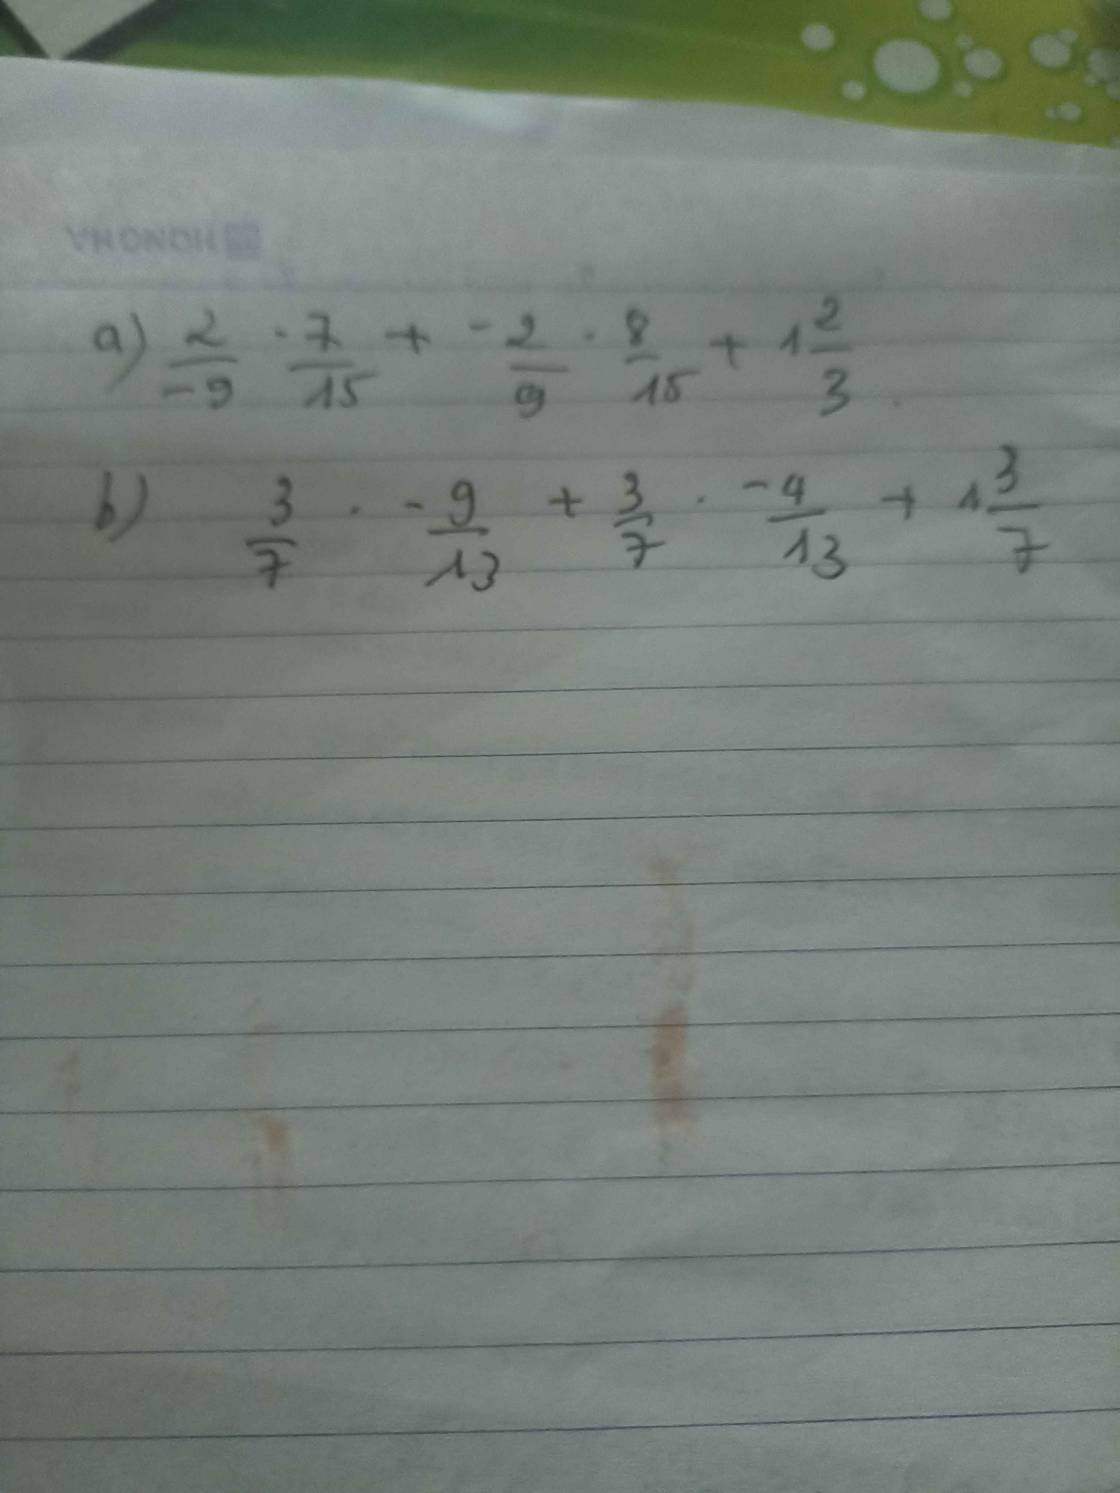 a) 2/-9 · 7/15 + -2/9 · 8/15 + 1 2/3
b) 3/7 · -9/13 + 3/7 · -4/13 + 1 3/7